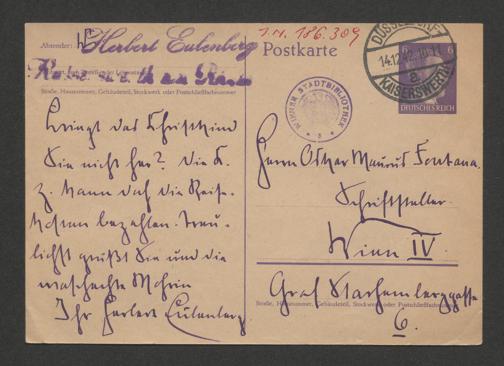 Absender:
W
Herbert Eulenberg
Kaiserswerth am Rhein
Straße, Hausnummer, Gebäudeteil, Stockwerk oder Postschließfachnummer
bringt das Christkind
Sie nicht her? Die K.
z. kann doch die Reise-
kosten bezahlen. Treu-
lichst grüßt Sie und die
waschechte
Ihr Herbert Eulenberg
J.N. 186.309
Postkarte
DÜSSELDORF
14.12.42
a
KAISERSWERTH
6
6
DEUTSCHES REICH
WIENER STADTBIBLIOTHEK
Herrn Oskar Maurus Fontana
Schriftsteller
Wien IV
Graf Starhemberggasse
Straße, Hausnummer, Gebäudeteil, Stockwerk oder Postschließfachnummer
6.